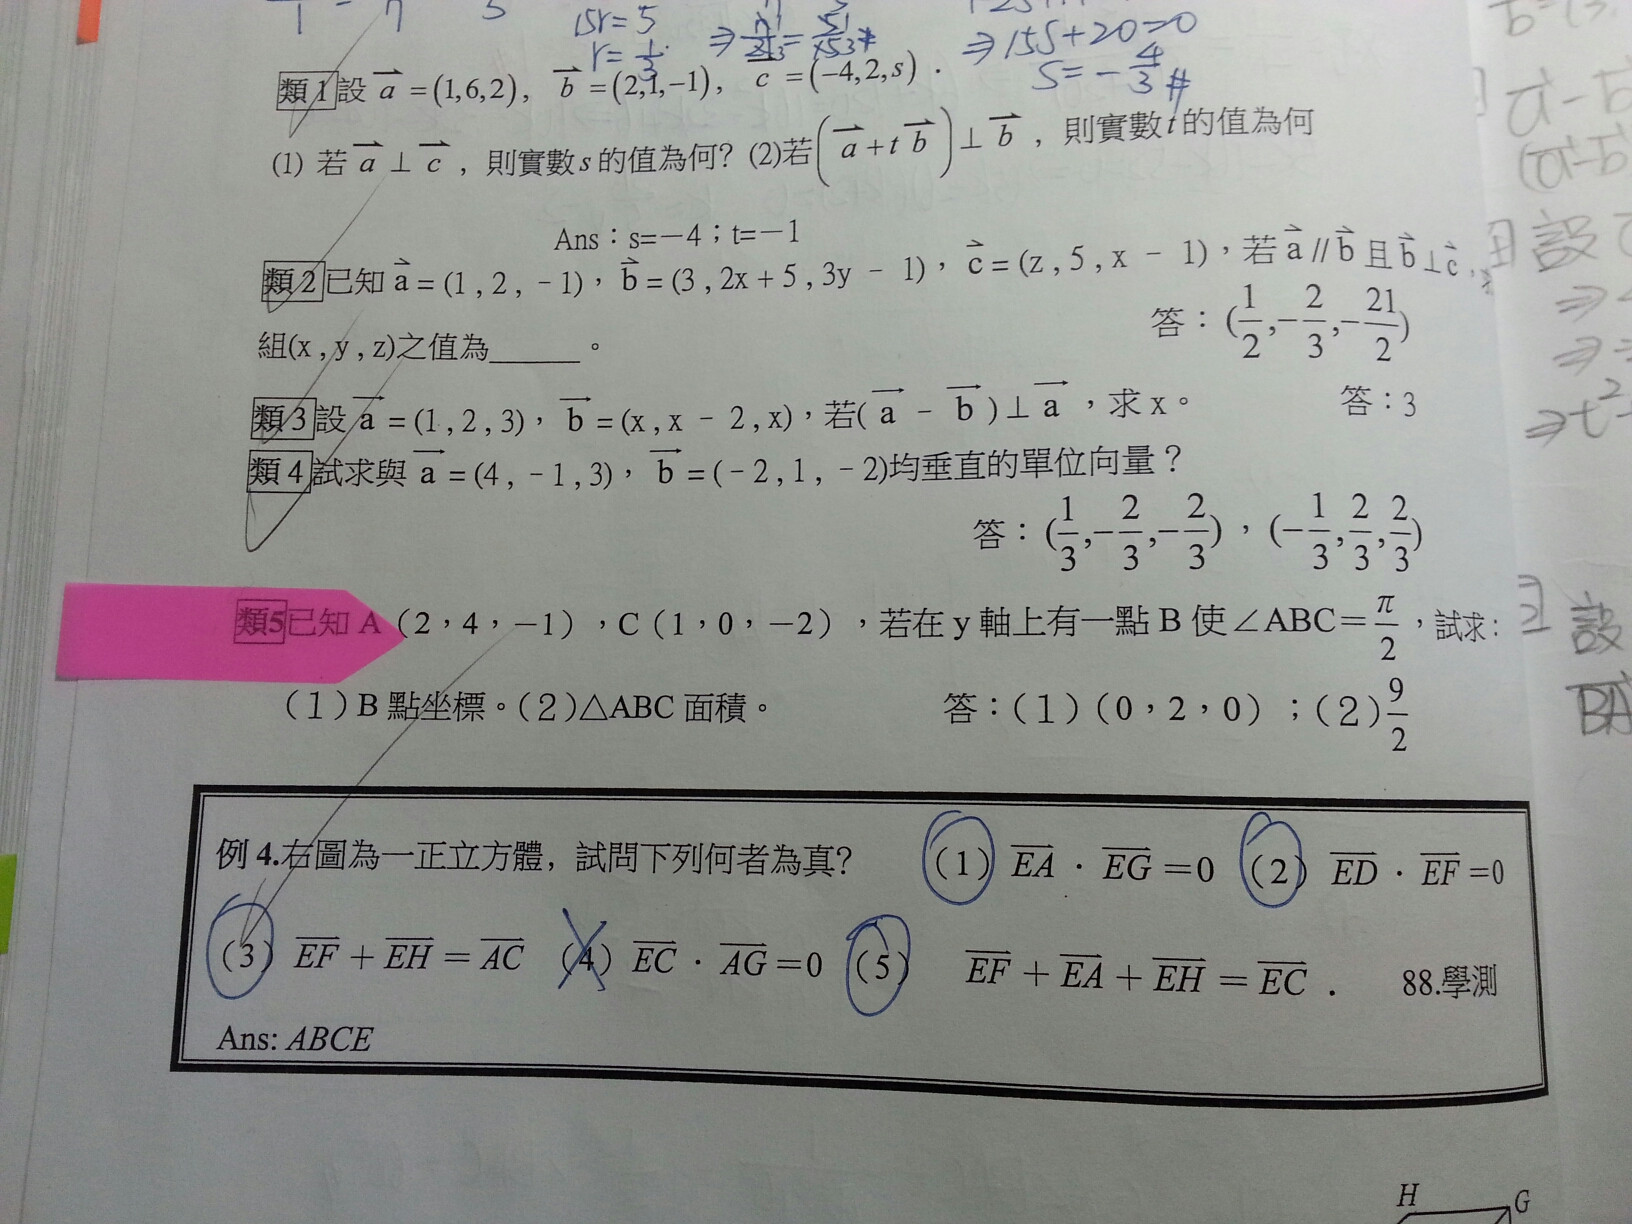 15r=5
r=1/3
⇒15s+20=0
s=-4/3#
類1 設 a=(1,6,2), b=(2,1,-1), c=(-4,2,s).
(1) 若 a⊥c, 則實數s的值為何? (2)若(a+tb)⊥b, 則實數t的值為何
Ans：s=－4；t=－1
類2 已知 a=(1,2,-1)，b=(3,2x+5,3y-1)，c=(z,5,x-1)，若a//b且b⊥c，
組(x,y,z)之值為______。 答：(1/2,-2/3,-21/2)
類3 設 a=(1,2,3)，b=(x,x-2,x)，若(a-b)⊥a，求x。 答：3
類4 試求與 a=(4,-1,3)，b=(-2,1,-2)均垂直的單位向量？
答：(1/3,-2/3,-2/3)，(-1/3,2/3,2/3)
類5 已知A（2，4，－1），C（1，0，－2），若在y軸上有一點B使∠ABC＝π/2，試求：
（1）B點坐標。（2）△ABC面積。 答：（1）（0，2，0）；（2）9/2
例 4.右圖為一正立方體，試問下列何者為真? (1) EA · EG =0 (2) ED · EF =0
(3) EF + EH = AC (4) EC · AG =0 (5) EF + EA + EH = EC . 88.學測
Ans: ABCE
H G
設
設
BA